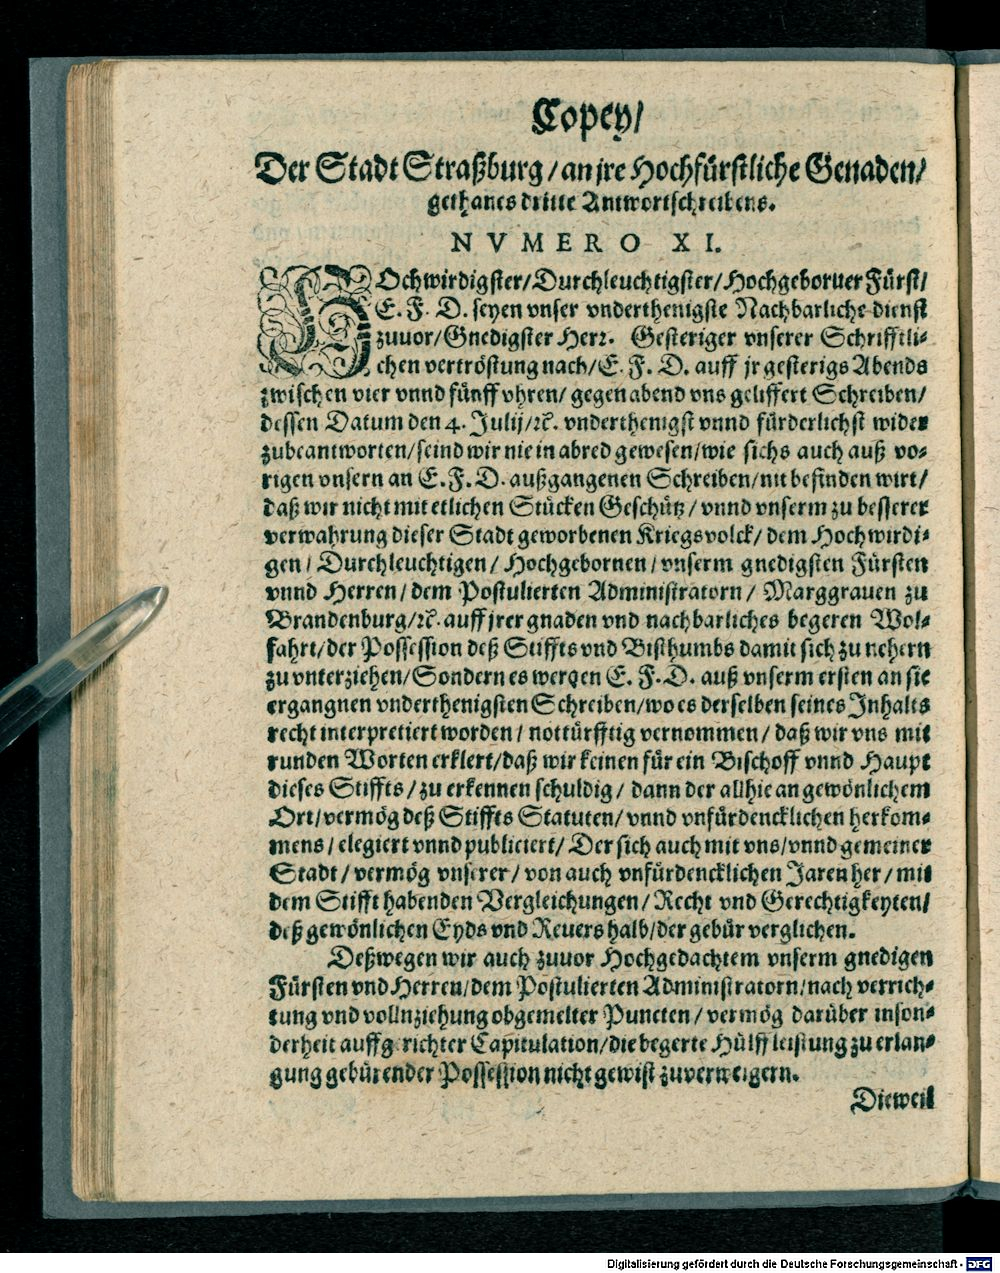 Copey/
Der Stadt Straßburg/an jre Hochfürstliche Genaden/
gethanes dritte Antwortschreibens.
NVMERO XI.
HOchwirdigster/Durchleuchtigster/Hochgeborner Fürst/
E. F. D. seyen vnser vnderthenigste Nachbarliche dienst
zuuor/Gnedigster Herr. Gesteriger vnserer Schrifftli-
chen vertröstung nach/E. F. D. auff jr gesterigs Abends
zwischen vier vnnd fünff vhren/gegen abend vns geliffert Schreiben/
dessen Datum den 4. Julij/ꝛc. vnderthenigst vnnd fürderlichst wider
zubeantworten/seind wir nie in abred gewesen/wie sichs auch auß vo-
rigen vnsern an E. F. D. außgangenen Schreiben/nit befinden wirt/
daß wir nicht mit etlichen Stücken Geschütz/vnnd vnserm zu besserer
verwahrung dieser Stadt geworbenen Kriegsvolck/dem Hochwirdi-
gen/Durchleuchtigen/Hochgebornen/vnserm gnedigsten Fürsten
vnnd Herren/dem Postulierten Administratorn/Marggrauen zu
Brandenburg/ꝛc. auff jrer gnaden vnd nachbarliches begeren Wol-
fahrt/der Possession deß Stiffts vnd Bisthumbs damit sich zu nehern
zu vnterziehen/Sondern es werden E. F. D. auß vnserm ersten an sie
ergangnen vnderthenigsten Schreiben/wo es derselben seines Inhalts
recht interpretiert worden/nottürfftig vernommen/daß wir vns mit
runden Worten erklert/daß wir keinen für ein Bischoff vnnd Haupt
dieses Stiffts/zu erkennen schuldig/dann der allhie an gewönlichem
Ort/vermög deß Stiffts Statuten/vnnd vnfürdencklichen herkom-
mens/elegiert vnnd publiciert/Der sich auch mit vns/vnnd gemeiner
Stadt/vermög vnserer/von auch vnfürdencklichen Jaren her/mit
dem Stifft habenden Vergleichungen/Recht vnd Gerechtigkeyten/
deß gewönlichen Eyds vnd Reuers halb/der gebür verglichen.
Deßwegen wir auch zuuor Hochgedachtem vnserm gnedigen
Fürsten vnd Herren/dem Postulierten Administratorn/nach verrich-
tung vnd vollnziehung obgemelter Puncten/vermög darüber inson-
derheit auffgerichter Capitulation/die begerte Hülffleistung zu erlan-
gung gebürender Possession nicht gewist zuverweigern.
Dieweil
Digitalisierung gefördert durch die Deutsche Forschungsgemeinschaft - DFG